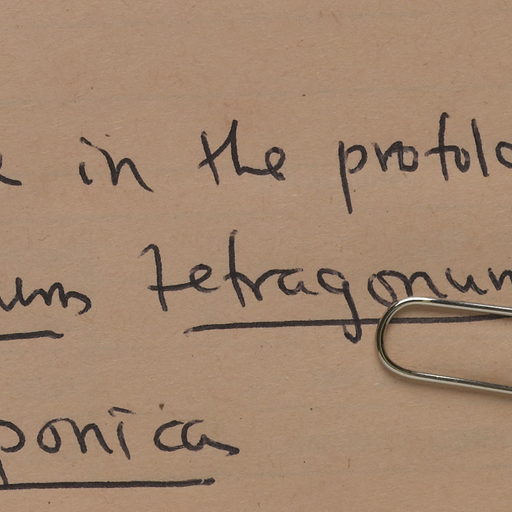 in the protolo
tetragonum
ponica